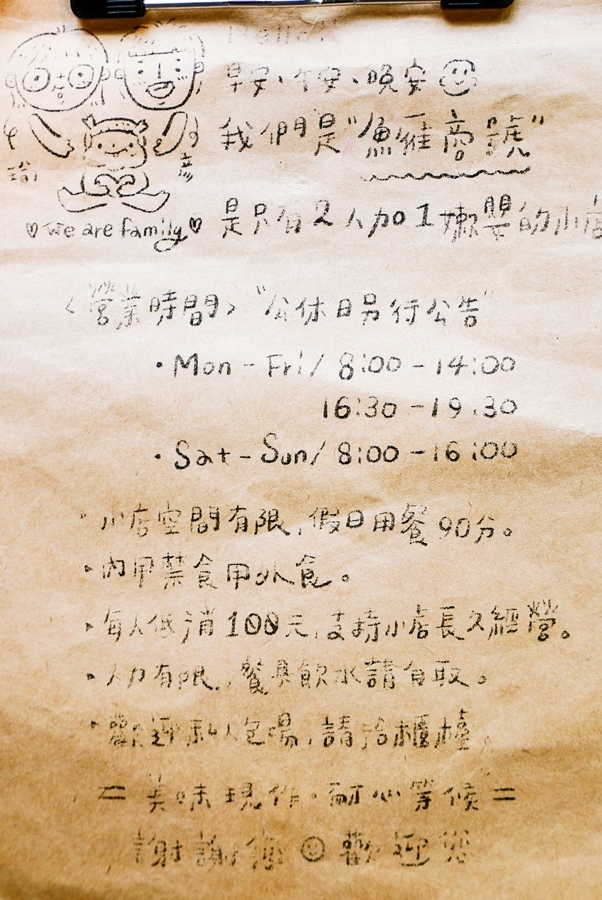 早安、午安、晚安
我們是"魚雅商號"
瑜
彥
we are family
是只有2人加1嫩嬰的小店
<營業時間> "公休日另行公告"
・Mon - Fri / 8:00 - 14:00
16:30 - 19:30
・Sat - Sun / 8:00 - 16:00
・小店空間有限,假日用餐90分。
・內用禁食用外食。
・每人低消100元,支持小店長久經營。
・人力有限,餐具飲水請自取。
・歡迎私人包場,請洽櫃檯。
= 美味現作・耐心等候 =
謝謝您 歡迎您